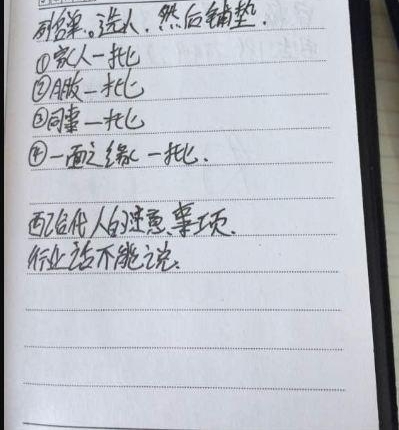 列名单。选人，然后铺垫.
①家人一批
②朋友一批
③同事一批
④一面之缘一批.
配合代人的注意事项.
行业话不能说.